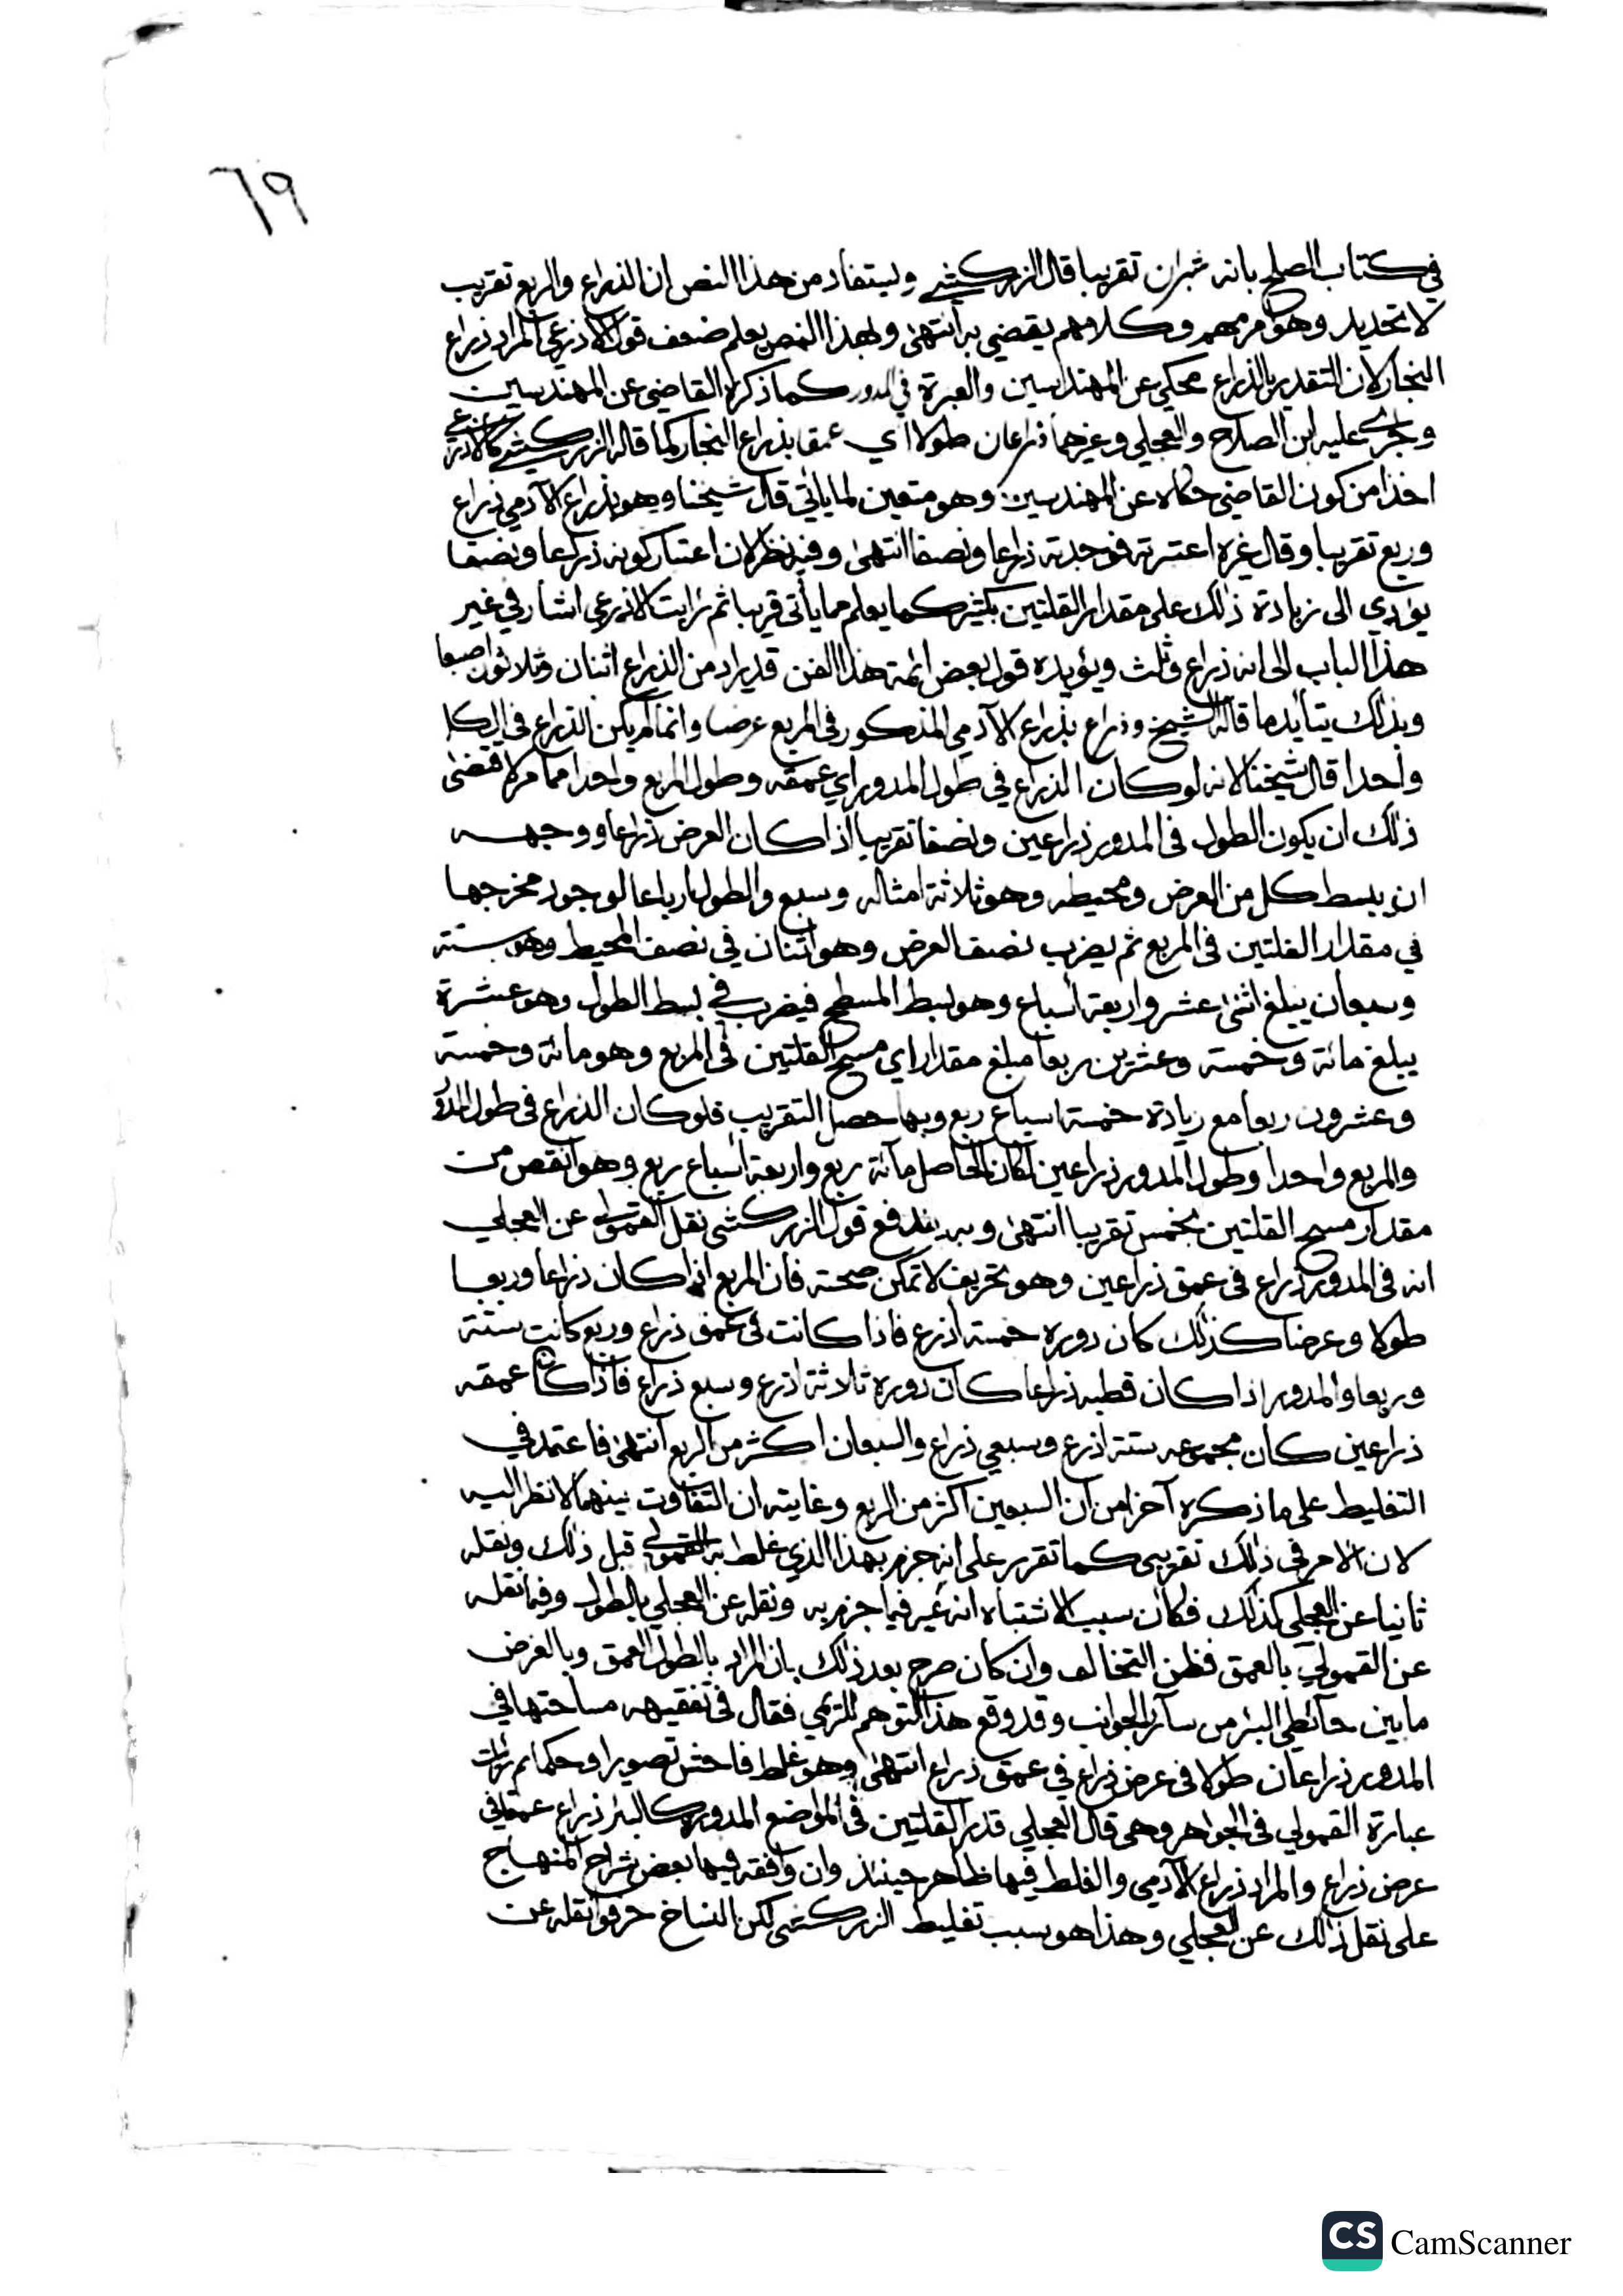 ٦٩
في كتاب الصلح بانه شبران تقريبا قال الزركشي ويستفاد من هذا النص ان الذراع والربع تقريب
لا تحديد وهو امر مهم وكلامهم يقضي به انتهى ولهذا النص يعلم ضعف قول الاذرعي المراد ذراع
النجار لان التقدير بالذراع محكي عن المهندسين والعبرة في المدور كما ذكره القاضي عن المهندسين
وجرى عليه ابن الصلاح والعجلي وغيرهما ذراعان طولا اي عمقا بذراع النجار كما قاله الزركشي كالاذرعي
اخذا من كون القاضي حكاه عن المهندسين وهو متعين لما ياتي قال شيخنا وهو بذراع الآدمي ذراع
وربع تقريبا وقال غيره اعتبرته فوجدته ذراعا ونصفا انتهى وفيه نظر لان اعتبار كونه ذراعا ونصفا
يؤدي الى زيادة ذلك على مقدار القلتين بكثير كما يعلم مما يأتي قريبا ثم رايت الاذرعي اشار في غير
هذا الباب الى انه ذراع وثلث ويؤيده قول بعض ائمة هذا الفن قد يراد من الذراع اثنان وثلاثون اصبعا
وبذلك يتأيد ما قاله الشيخ وذراع بذراع الآدمي المذكور في المربع عرضا وانما لم يكن الذراع في الكل
واحدا قال شيخنا لانه لو كان الذراع في طول المدور اي عمقه وطول المربع واحدا مما مر لاقتضى
ذلك ان يكون الطول في المدور ذراعين ونصفا تقريبا اذا كان العرض ذراعا ووجهه
ان يبسط كل من العرض ومحيطه وهو ثلاثة امثاله وسبع والطول ارباعا لوجود مخرجها
في مقدار القلتين في المربع ثم يضرب نصف العرض وهو اثنان في نصف المحيط وهو ستة
وسبعان يبلغ اثنى عشر واربعة أسباع وهو بسط المسطح فيضرب في بسط الطول وهو عشرة
يبلغ مائة وخمسة وعشرين ربعا مبلغ مقدار اي مسح القلتين في المربع وهو مائة وخمسة
وعشرون ربعا مع زيادة خمسة اسباع ربع وبها حصل التقريب فلو كان الذراع في طول المدور
والمربع واحدا وطول المدور ذراعين لكان الحاصل مائة ربع واربعة أسباع ربع وهو انقص من
مقدار مسح القلتين بخمس تقريبا انتهى وبه يندفع قول الزركشي نقل القمولي عن العجلي
انه في المدور ذراع في عمق ذراعين وهو تحريف لا تمكن صحته فان المربع اذا كان ذراعا وربعا
طولا وعرضا كذلك كان دوره خمسة أذرع فاذا كانت في عمق ذراع وربع كانت ستة
وربعا والمدور اذا كان قطبه ذراعا كان دوره ثلاثة اذرع وسبع ذراع فاذا كان عمقه
ذراعين كان مجموعه ستة اذرع وسبعي ذراع والسبعان اكثر من الربع انتهى فاعتمد في
التغليط على ما ذكره آخرا من ان السبعين اكثر من الربع وغايته ان التفاوت بينهما لا نظر اليه
لان الامر في ذلك تقريبي كما تقرر على انه جزم بهذا الذي غلط به القمولي قبل ذلك ونقله
ثانيا عن العجلي كذلك فكان سبب الاشتباه انه عبر فيما جزم به ونقله عن العجلي بالطول وفيما نقله
عن القمولي بالعمق فظن التخالف وان كان صرح بعد ذلك بان المراد بالطول العمق وبالعرض
ما بين حائطي البئر من سائر الجوانب وقد وقع هذا التوهم للريمي فقال في تفقيهه مساحتها في
المدور ذراعان طولا في عرض ذراع في عمق ذراع انتهى وهو غلط فاحش تصويرا وحكما ثم رأيت
عبارة القمولي في الجواهر وهي قال العجلي قدر القلتين في المواضع المدورة كالبئر ذراع عمقا في
عرض ذراع والمراد ذراع الآدمي والغلط فيها ظاهر حينئذ وان وافقه فيها بعض شراح المنهاج
على نقل ذلك عن العجلي وهذا هو سبب تغليط الزركشي لكن النساخ حرفوا نقله عن
CS CamScanner